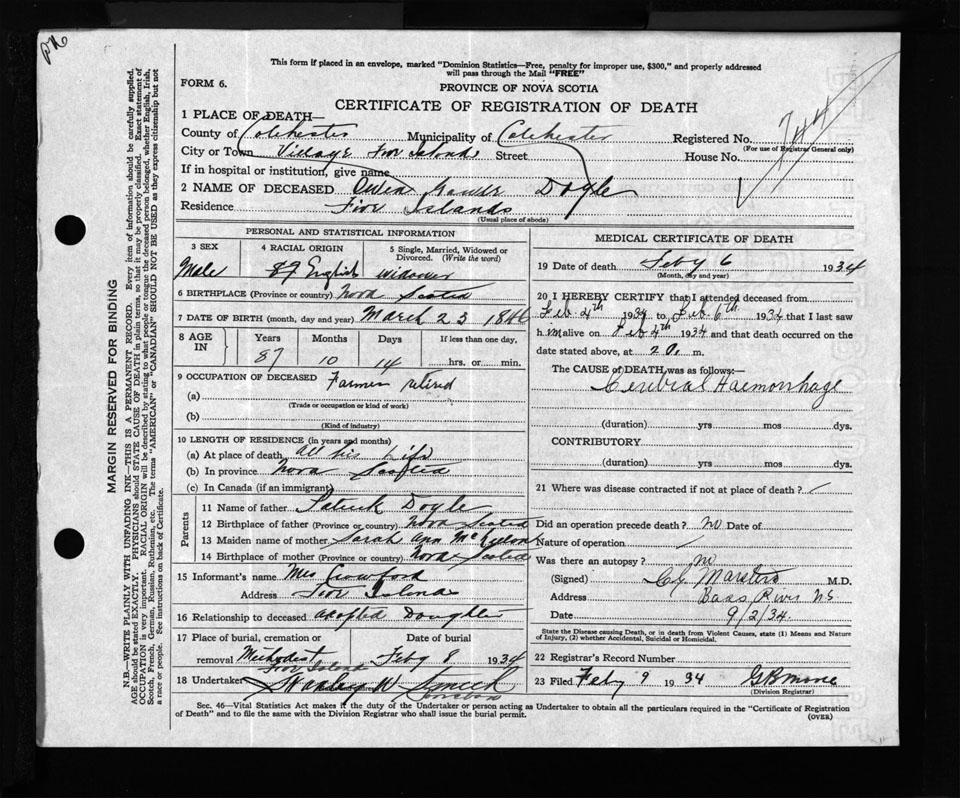 This form if placed in an envelope, marked "Dominion Statistics—Free, penalty for improper use, $300," and properly addressed
will pass through the Mail "FREE"
FORM 6.
PROVINCE OF NOVA SCOTIA
CERTIFICATE OF REGISTRATION OF DEATH
1 PLACE OF DEATH—
County of Colchester Municipality of Colchester Registered No. 744
(For use of Registrar General only)
City or Town Village Five Islands Street House No.
If in hospital or institution, give name
2 NAME OF DECEASED Owen Doyle
Residence Five Islands
(Usual place of abode)
PERSONAL AND STATISTICAL INFORMATION
3 SEX 4 RACIAL ORIGIN 5 Single, Married, Widowed or Divorced. (Write the word)
Male 89 English widower
6 BIRTHPLACE (Province or country) Nova Scotia
7 DATE OF BIRTH (month, day and year) March 23 1846
8 AGE IN Years Months Days If less than one day,
87 10 14 hrs. or min.
9 OCCUPATION OF DECEASED Farmer retired
(a)
(Trade or occupation or kind of work)
(b)
(Kind of industry)
10 LENGTH OF RESIDENCE (in years and months)
(a) At place of death all his Life
(b) In province Nova Scotia
(c) In Canada (if an immigrant)
Parents
11 Name of father Patrick Doyle
12 Birthplace of father (Province or country) Nova Scotia
13 Maiden name of mother Sarah Ann
14 Birthplace of mother (Province or country) Nova Scotia
15 Informant's name Mrs Crawford
Address Five Islands
16 Relationship to deceased adopted Daughter
17 Place of burial, cremation or removal Date of burial
Methodist Five Islands Feby 8 1934
18 Undertaker Stanley W Smith
MEDICAL CERTIFICATE OF DEATH
19 Date of death Feby 6 1934
(Month, day and year)
20 I HEREBY CERTIFY that I attended deceased from
Feb. 4th 1934 to Feb. 6th 1934 that I last saw
him alive on Feb 4th 1934 and that death occurred on the
date stated above, at m.
The CAUSE of DEATH was as follows:—
Cerebral Haemorrhage
(duration) yrs mos dys.
CONTRIBUTORY
(duration) yrs. mos dys.
21 Where was disease contracted if not at place of death?
Did an operation precede death? no Date of
Nature of operation
Was there an autopsy? no
(Signed) Marsters M.D.
Address Bass River NS
Date 9/2/34.
State the Disease causing Death, or in death from Violent Causes, state (1) Means and Nature
of Injury, (2) whether Accidental, Suicidal or Homicidal.
22 Registrar's Record Number
23 Filed Feby 9 1934
(Division Registrar)
Sec. 46—Vital Statistics Act makes it the duty of the Undertaker or person acting as Undertaker to obtain all the particulars required in the "Certificate of Registration
of Death" and to file the same with the Division Registrar who shall issue the burial permit.
(OVER)
MARGIN RESERVED FOR BINDING
N.B.—WRITE PLAINLY WITH UNFADING INK—THIS IS A PERMANENT RECORD. Every item of information should be carefully supplied.
AGE should be stated EXACTLY. PHYSICIANS should STATE CAUSE OF DEATH in plain terms, so that it may be properly classified. Exact statement of
OCCUPATION is very important. RACIAL ORIGIN will be described by stating to what people or tongue the deceased person belonged, whether English, Irish,
Scotch, French, German, Russian, Ruthenian, etc. The terms "AMERICAN" or "CANADIAN" SHOULD NOT BE USED as they express citizenship but not
a race or people. See instructions on back of Certificate.